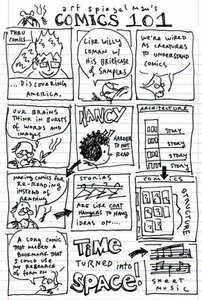 art spiegelman's
COMICS 101
THRU COMICS...
... DISCOVERING
AMERICA.
LIKE WILLY
LOMAN W/
HIS BRIEFCASE
OF SAMPLES
WE'RE WIRED
AS CREATURES
TO UNDERSTAND
COMICS
OUR BRAINS
THINK IN
BURSTS OF
WORDS AND
IMAGES
NANCY
HARDER
TO NOT
READ
ARCHITECTURE
STORY
STORY
STORY
STORY
MAKING COMICS FOR
RE-READING
INSTEAD OF
STORIES
ARE LIKE COAT
HANGERS TO HANG
IDEAS ON...
COMICS
STRUCTURE
A LONG COMIC
THAT NEEDED A
BOOKMARK THAT
I COULD USE
MY RESEARCH
OF FORM ON
TIME
TURNED into
SPACE!
SHEET
MUSIC